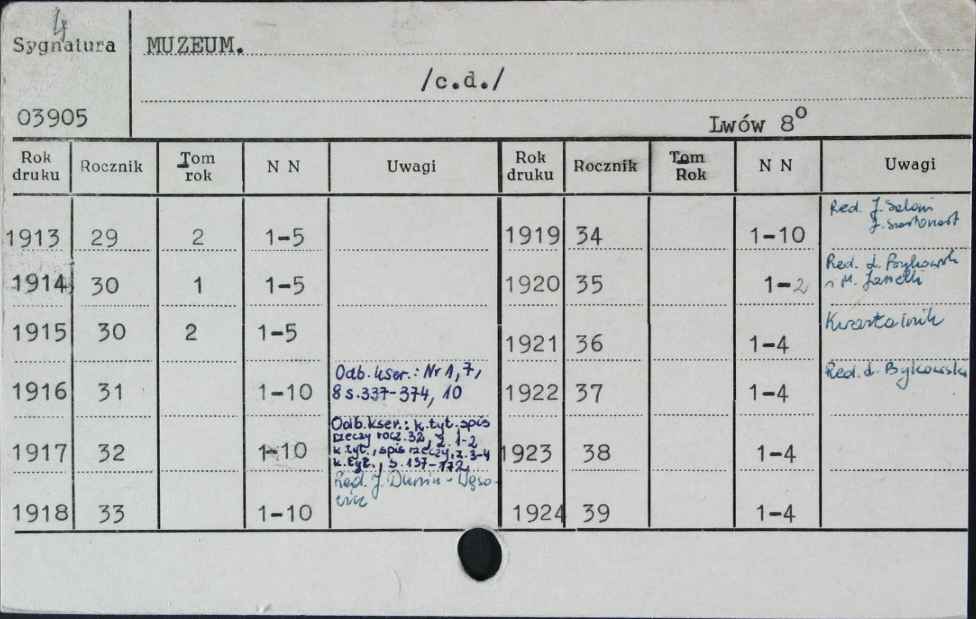 4
Sygnatura MUZEUM.
/c.d./
03905
Lwów 8⁰
Rok druku Rocznik Tom rok N N Uwagi Rok druku Rocznik Tom Rok N N Uwagi
1913 29 2 1-5 1919 34 1-10 Red. J.
J.
1914 30 1 1-5 1920 35 1-2 Red. L. Bykowski
i M. Janelli
1915 30 2 1-5 1921 36 1-4 Kwartalnik
1916 31 1-10 Odb. kser.: Nr 1, 7,
8 s. 337-374, 10 1922 37 1-4 Red. L. Bykowski
1917 32 1-10 Odb. kser.: k. tyt. spis
rzeczy rocz. 32, z. 1-2
k. tyt., spis rzeczy, z. 3-4
k. tyt., s. 137-172, 1923 38 1-4
Red. J. Dunin-Wąso-
wicz
1918 33 1-10 1924 39 1-4